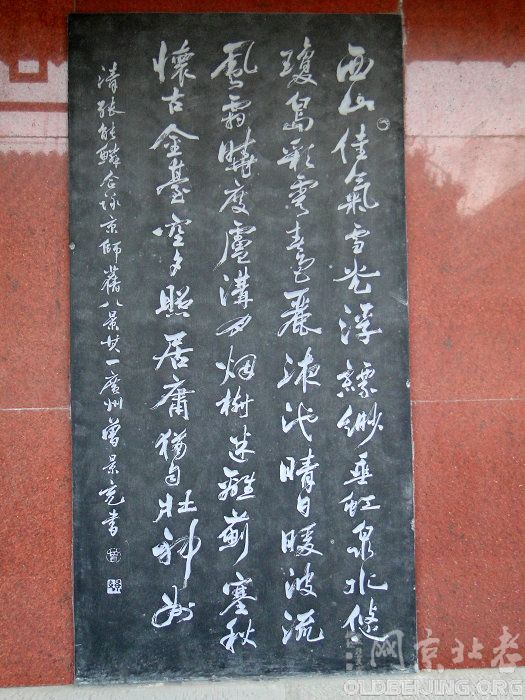 西山佳氣雪光浮縹緲垂虹泉水悠
瓊島彩雲春色麗液池晴日暖波流
風霜曉度盧溝月烟樹迷離薊塞秋
懷古金臺空夕照居庸猶自壯神州
清張能鱗合詠京師舊八景其一廣州曾景充書
老北京网
OLDBEIJING.ORG